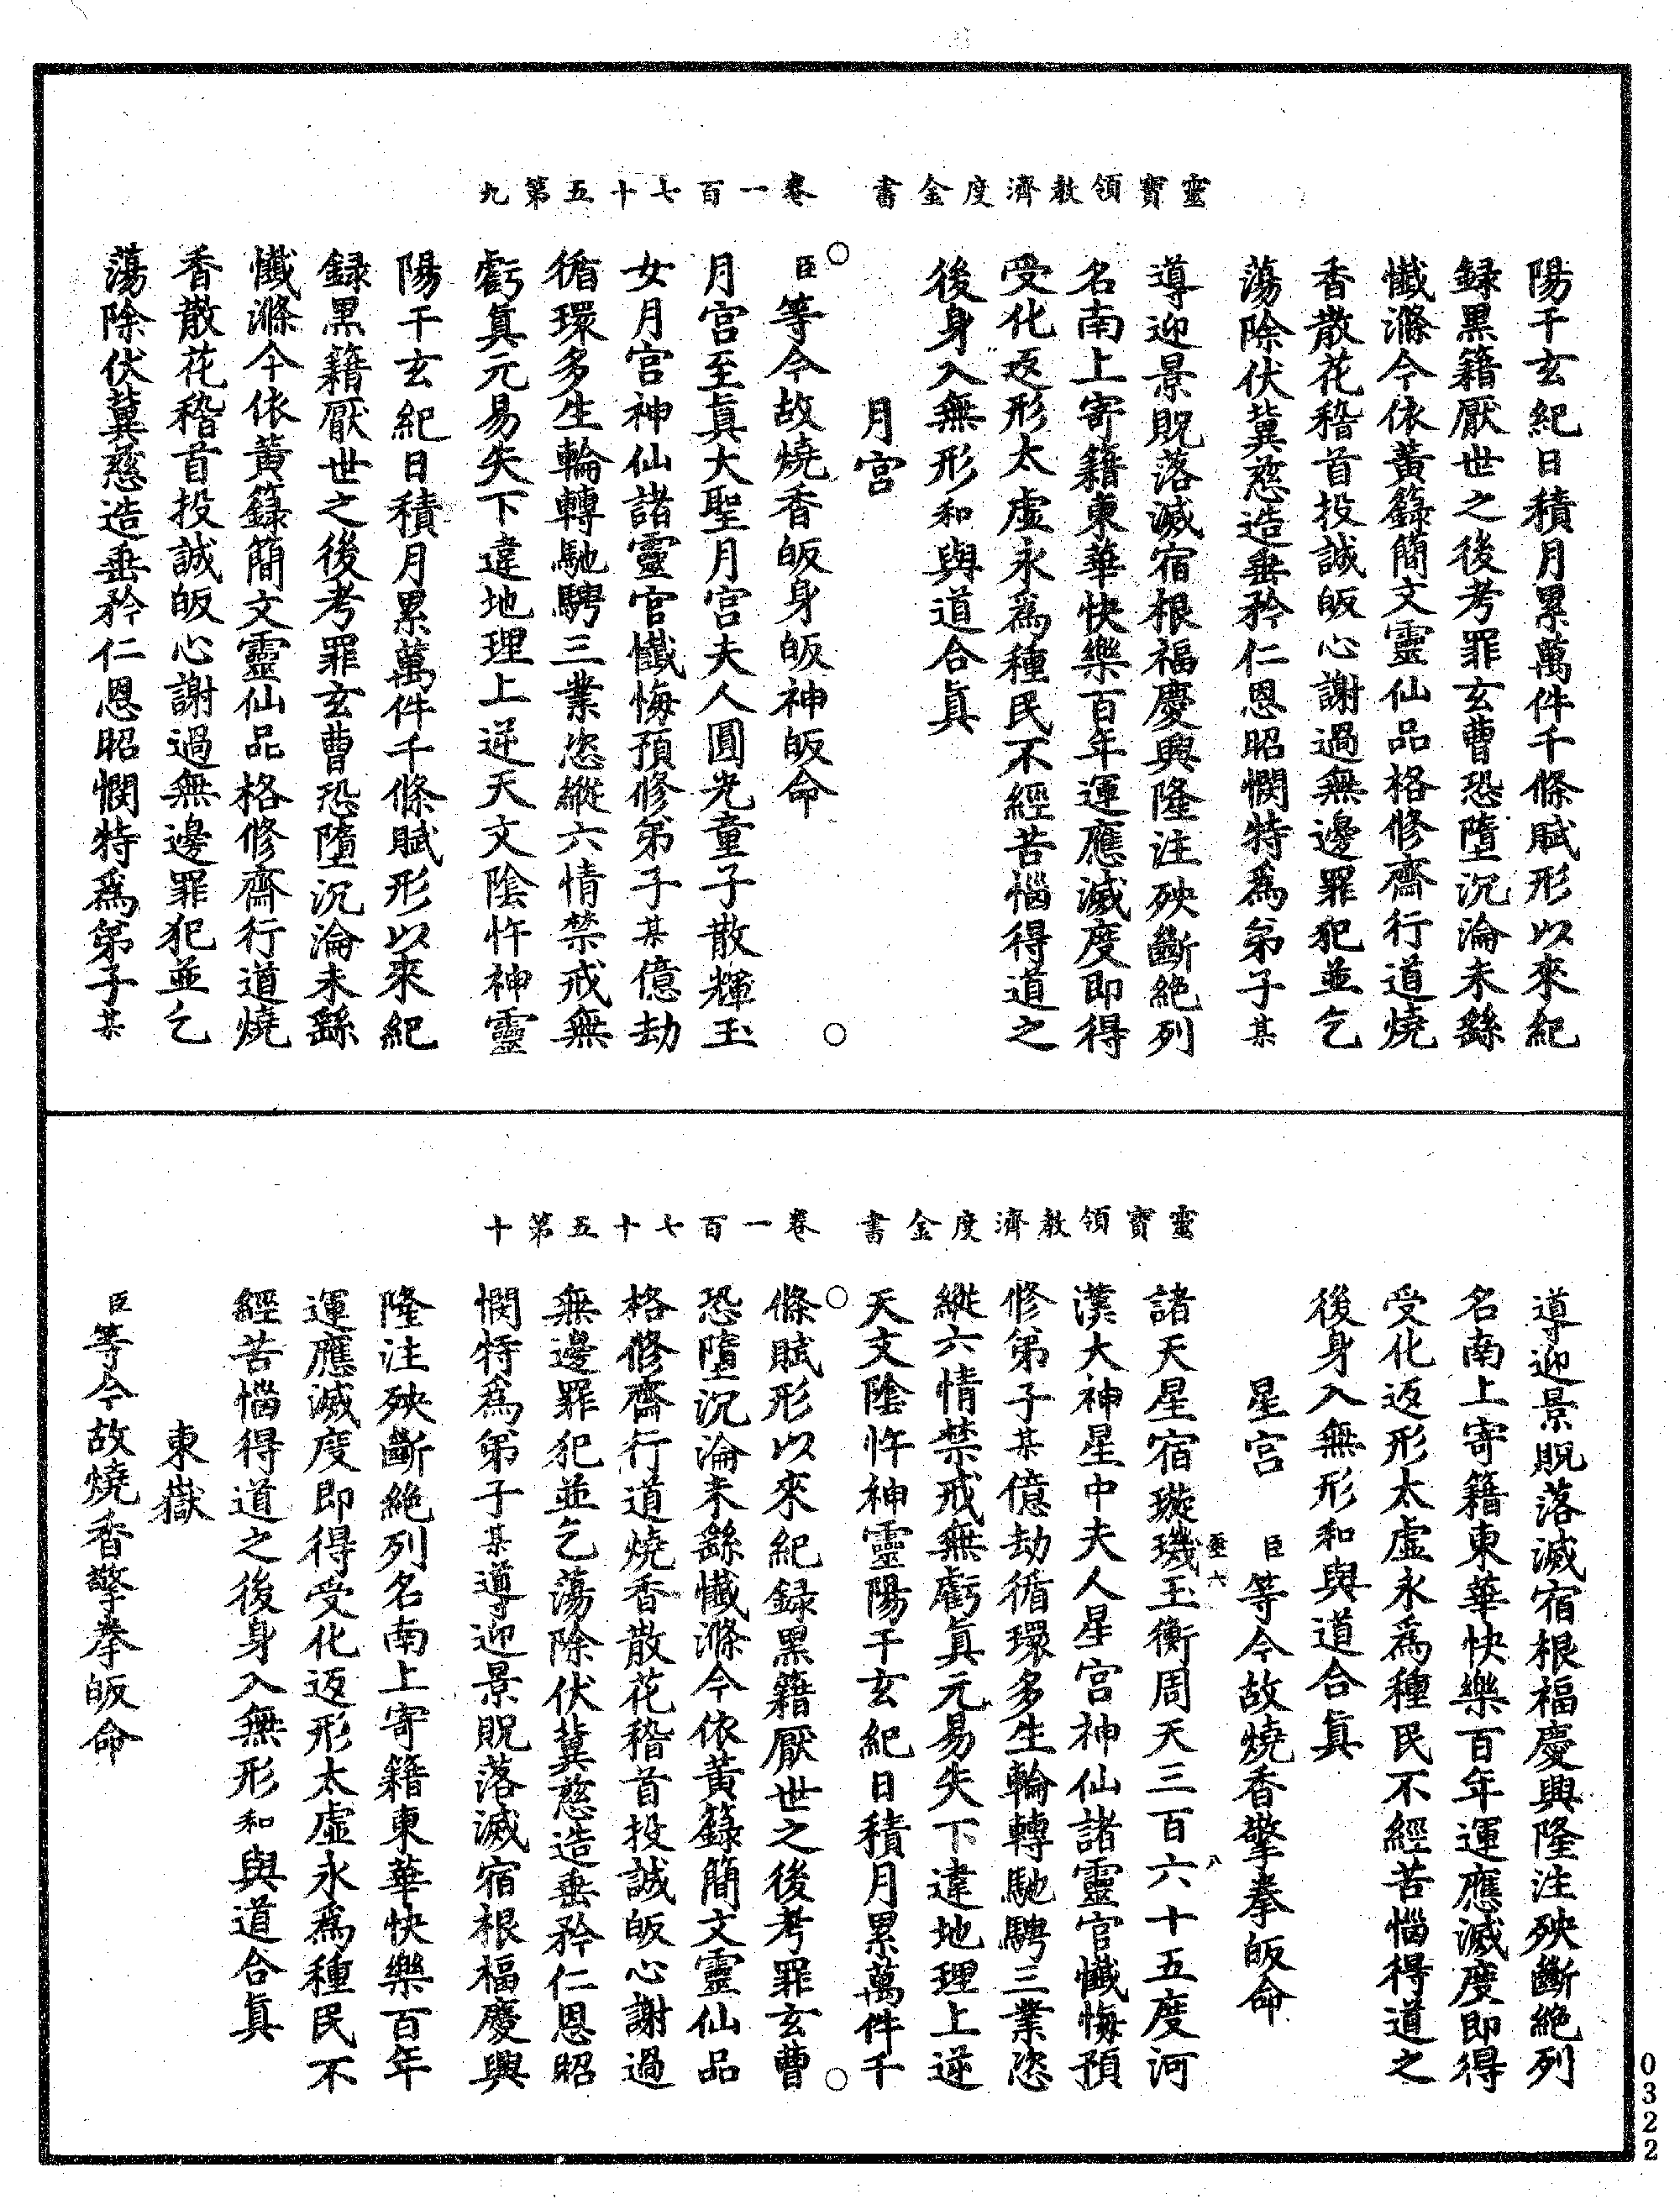 靈寶領教濟度金書 卷一百七十五第九
陽干玄紀日積月累萬件千條賦形以來紀
録黑籍厭世之後考罪玄曹恐墮沉淪未繇
懺滌今依黃籙簡文靈仙品格修齋行道燒
香散花稽首投誠皈心謝過無邊罪犯並乞
蕩除伏冀慈造垂矜仁恩昭憫特爲弟子某
導迎景貺落滅宿根福慶興隆注殃斷絕列
名南上寄籍東華快樂百年運應滅度即得
受化返形太虛永爲種民不經苦惱得道之
後身入無形和與道合真
月宮
臣等今故燒香皈身皈神皈命
月宮至真大聖月宮夫人圓光童子散輝玉
女月宮神仙諸靈官懺悔預修弟子某億劫
循環多生輪轉馳騁三業恣縱六情禁戒無
虧真元易失下違地理上逆天文陰忤神靈
陽干玄紀日積月累萬件千條賦形以來紀
録黑籍厭世之後考罪玄曹恐墮沉淪未繇
懺滌今依黃籙簡文靈仙品格修齋行道燒
香散花稽首投誠皈心謝過無邊罪犯並乞
蕩除伏冀慈造垂矜仁恩昭憫特爲弟子某
靈寶領教濟度金書 卷一百七十五第十
導迎景貺落滅宿根福慶興隆注殃斷絕列
名南上寄籍東華快樂百年運應滅度即得
受化返形太虛永爲種民不經苦惱得道之
後身入無形和與道合真
星宮 臣等今故燒香擎拳皈命
諸天星宿璇璣玉衡周天三百六十五度河
漢大神星中夫人星宮神仙諸靈官懺悔預
修弟子某億劫循環多生輪轉馳騁三業恣
縱六情禁戒無虧真元易失下違地理上逆
天文陰忤神靈陽干玄紀日積月累萬件千
條賦形以來紀録黑籍厭世之後考罪玄曹
恐墮沉淪未繇懺滌今依黃籙簡文靈仙品
格修齋行道燒香散花稽首投誠皈心謝過
無邊罪犯並乞蕩除伏冀慈造垂矜仁恩昭
憫特爲弟子某導迎景貺落滅宿根福慶興
隆注殃斷絕列名南上寄籍東華快樂百年
運應滅度即得受化返形太虛永爲種民不
經苦惱得道之後身入無形和與道合真
東嶽
臣等今故燒香擎拳皈命
0322